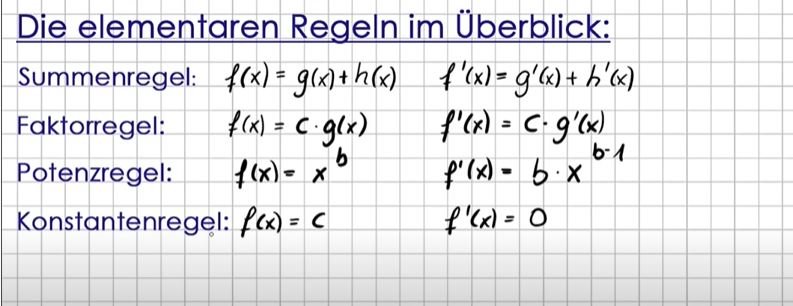 Die elementaren Regeln im Überblick:
Summenregel: f(x) = g(x) + h(x) f'(x) = g'(x) + h'(x)
Faktorregel: f(x) = c · g(x) f'(x) = c · g'(x)
Potenzregel: f(x) = x^b f'(x) = b · x^(b-1)
Konstantenregel: f(x) = c f'(x) = 0